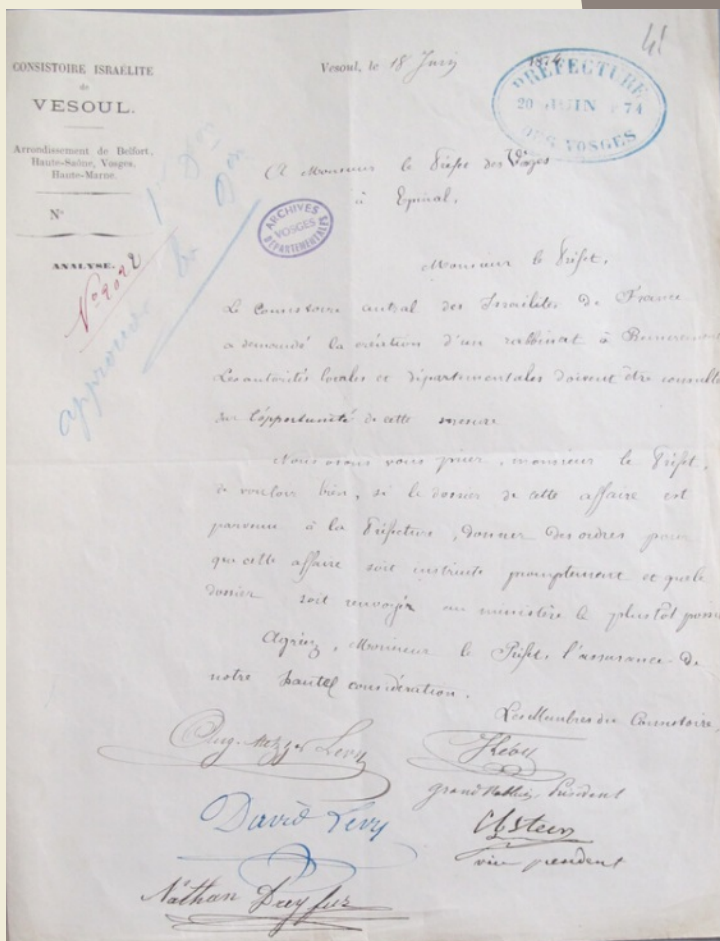 41
CONSISTOIRE ISRAÉLITE
de
VESOUL.
Arrondissement de Belfort,
Haute-Saône, Vosges,
Haute-Marne.
N°
ANALYSE.
N° 2022
1re Don
approuvé
Vesoul, le 18 Juin 1874
PRÉFECTURE
20 JUIN 74
DES VOSGES
A Monsieur le Préfet des Vosges
à Epinal.
ARCHIVES
VOSGES
DÉPARTEMENTALES
Monsieur le Préfet,
Le Consistoire central des Israélites de France
a demandé la création d'un rabbinat à
Les autorités locales et départementales doivent être
sur l'opportunité de cette mesure
Nous osons vous prier, monsieur le Préfet,
de vouloir bien, si le dossier de cette affaire est
parvenu à la Préfecture, donner des ordres pour
que cette affaire soit instruite promptement et que le
dossier soit renvoyé au ministère le plus tôt
Agréez, Monsieur le Préfet, l'assurance de
notre haute considération.
Les Membres du Consistoire,
Levy
grand Rabbin, Président
David Levy
vice président
Nathan Dreyfus